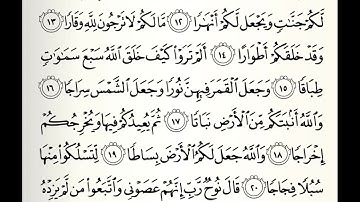 لَّكُمْ جَنَّٰتٍ وَيَجْعَل لَّكُمْ أَنْهَٰرًا ١٢ مَّا لَكُمْ لَا تَرْجُونَ لِلَّهِ وَقَارًا ١٣
وَقَدْ خَلَقَكُمْ أَطْوَارًا ١٤ أَلَمْ تَرَوْا۟ كَيْفَ خَلَقَ ٱللَّهُ سَبْعَ سَمَٰوَٰتٍ
طِبَاقًا ١٥ وَجَعَلَ ٱلْقَمَرَ فِيهِنَّ نُورًا وَجَعَلَ ٱلشَّمْسَ سِرَاجًا ١٦
وَٱللَّهُ أَنۢبَتَكُم مِّنَ ٱلْأَرْضِ نَبَاتًا ١٧ ثُمَّ يُعِيدُكُمْ فِيهَا وَيُخْرِجُكُمْ
إِخْرَاجًا ١٨ وَٱللَّهُ جَعَلَ لَكُمُ ٱلْأَرْضَ بِسَاطًا ١٩ لِّتَسْلُكُوا۟ مِنْهَا
سُبُلًا فِجَاجًا ٢٠ قَالَ نُوحٌ رَّبِّ إِنَّهُمْ عَصَوْنِى وَٱتَّبَعُوا۟ مَن لَّمْ يَزِدْهُ